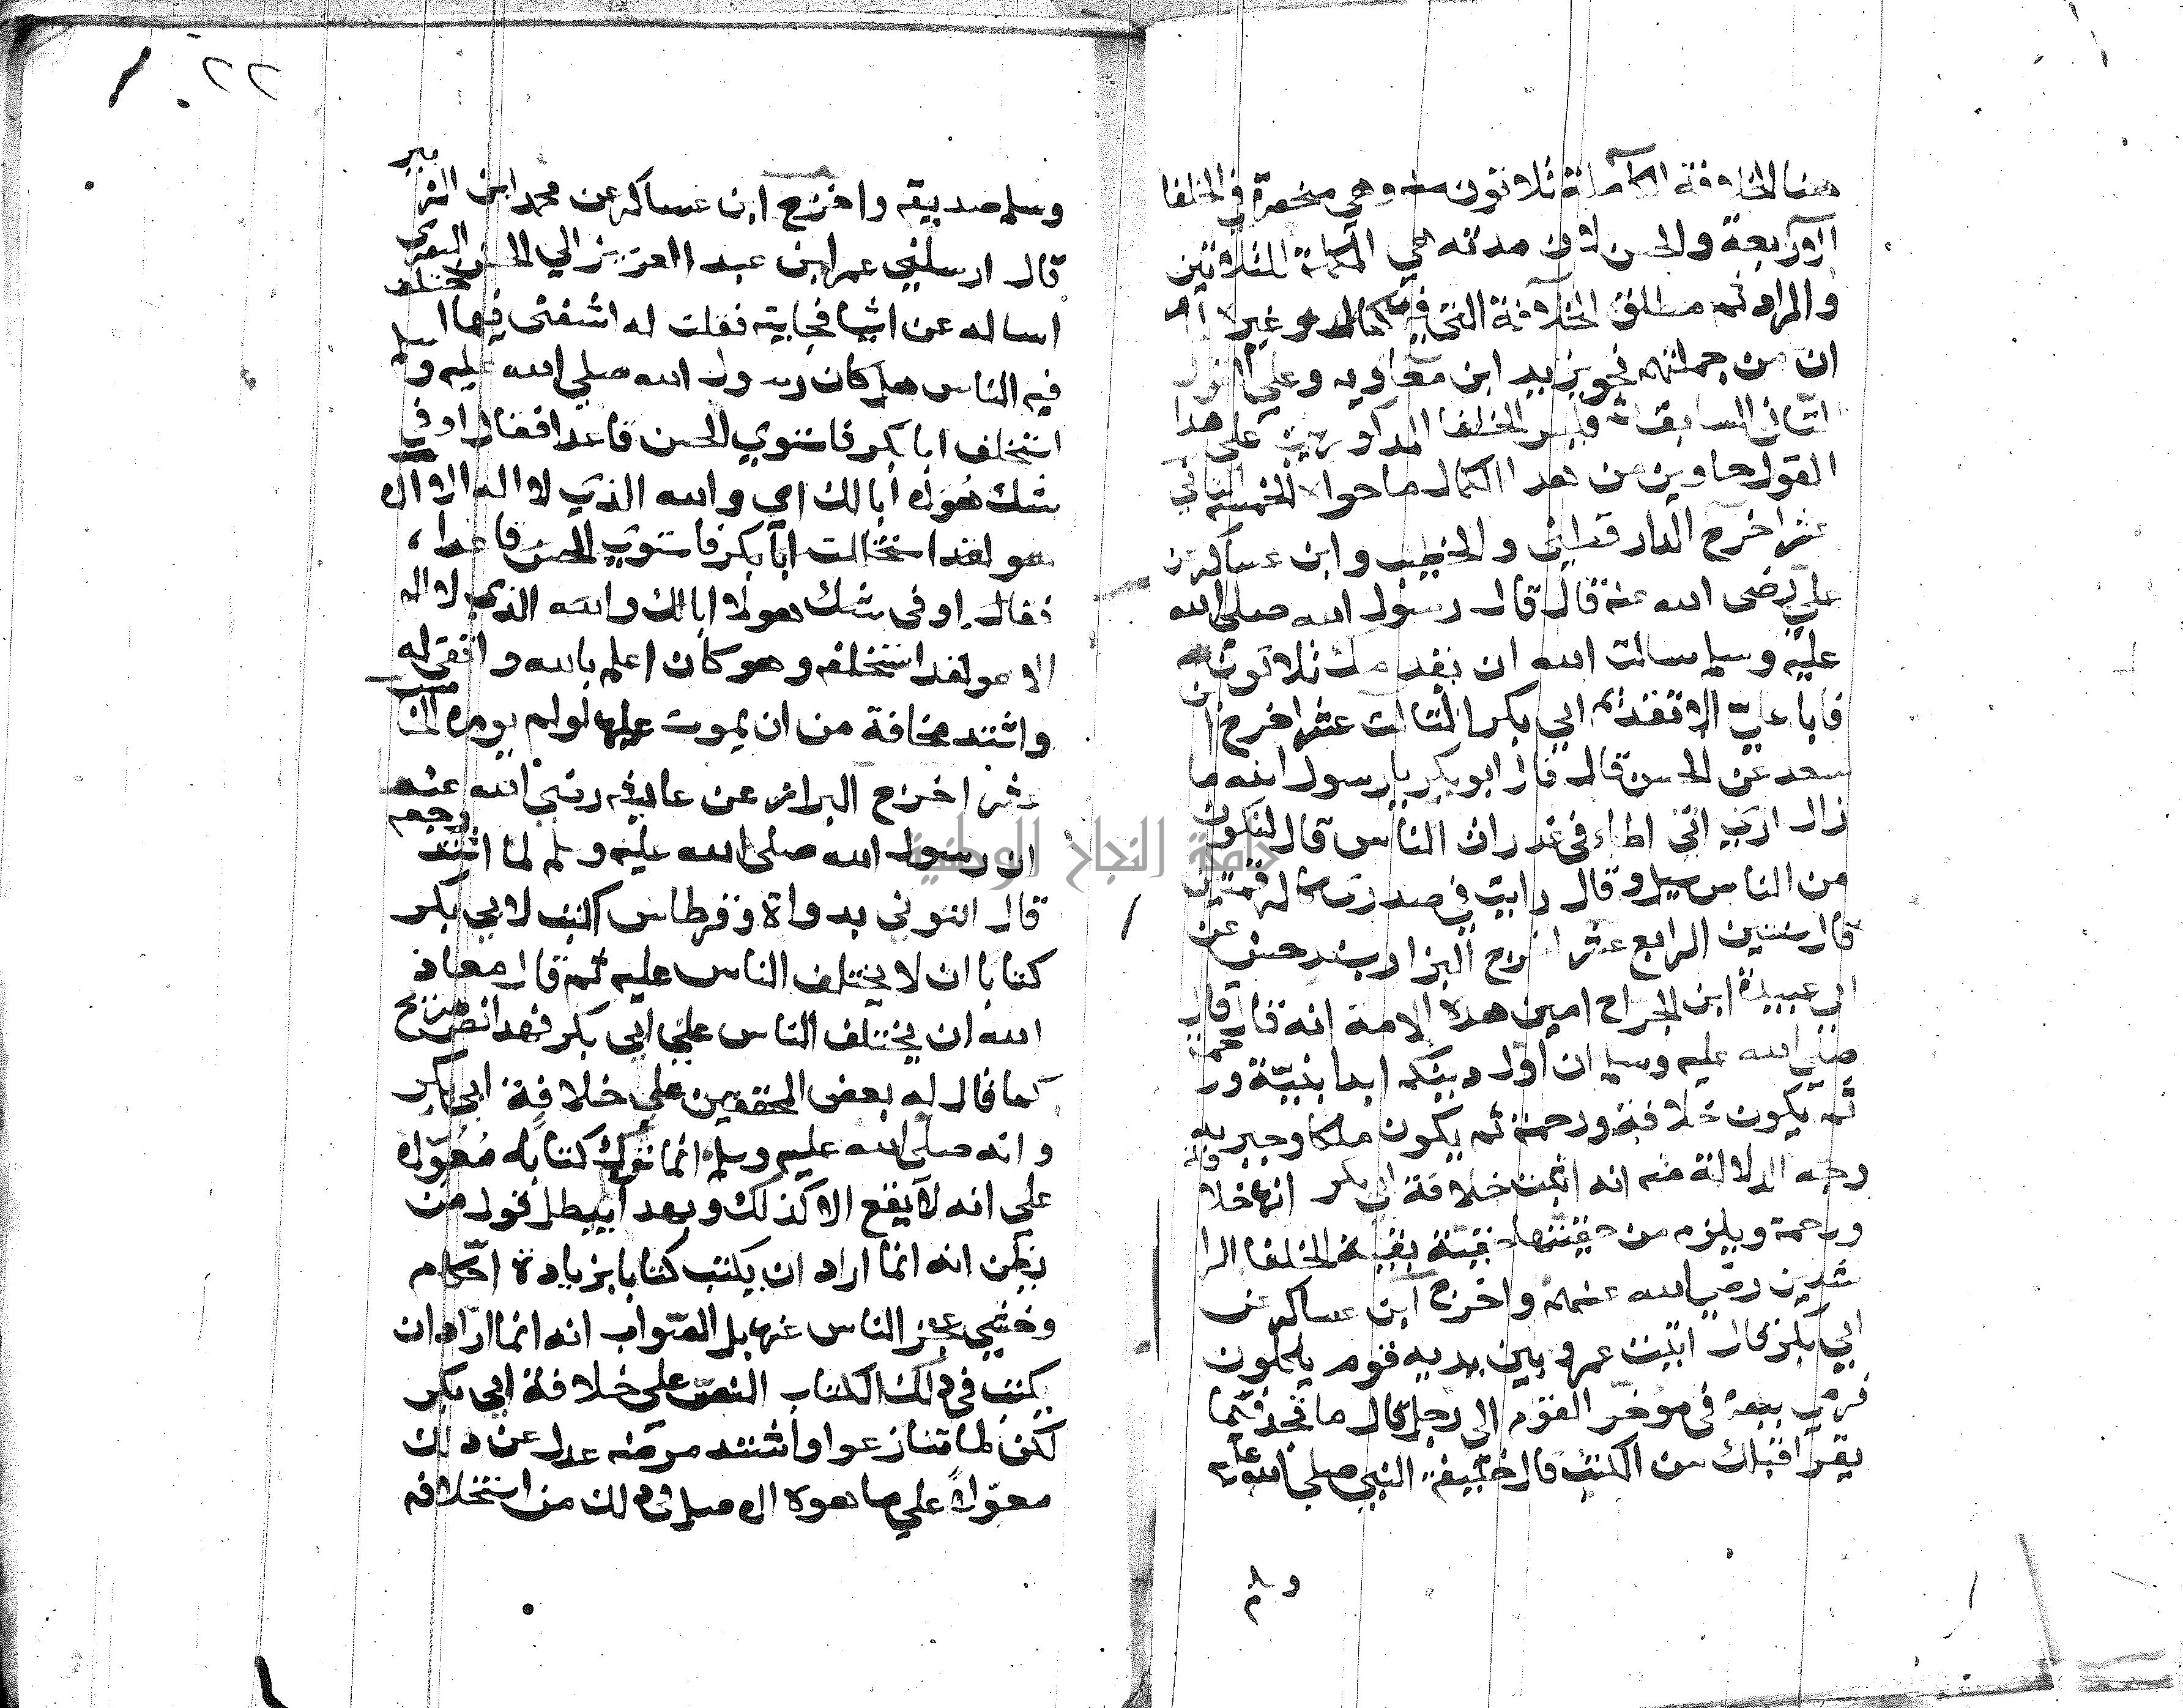 هنا الخلافة الكاملة ثلاثون سنة وهي منحصرة في الخلفا
الاربعة والحسن لان مدته هي المكملة للثلاثين
والمراد ثم مطلق الخلافة التي فيها كمال وغيره لما
ان من جملتهم نحو يزيد ابن معاويه وعلي القول
الثاني السابق ثمة فليس الخلفا المذكورين على هذا
القول حاوين من هذا الكمال ما حواه الخمسة الثاني
عشر اخرج الدار قطني والخطيب وابن عساكر عن
علي رضى الله عنه قال قال رسول الله صلى الله
عليه وسلم سالت الله ان يقدمك ثلاثون
فابا علي الا تقديم ابي بكر الثالث عشر اخرج ابن
سعد عن الحسن قال قال ابو بكر يا رسول الله ما
زال ارى انى اطاء في غدرات الناس قال لتكونن
من الناس سبيل وقال رايت في صدري كالرقمتين
قال سنتين الرابع عشر اخرج البزار بسند حسن عن
ابي عبيدة ابن الجراح امين هذه الامة انه قال قال
صلى الله عليه وسلم ان اول دينكم ابدا بنبيّة ورحمة
ثم يكون خلافة ورحمة ثم يكون ملكا وجبريه
وجه الدلالة منه انه اثبت خلافة ابي بكر انها خلافة
ورحمة ويلزم من حقيتها حقية بقية الخلفا الرا
شدين رضي الله عنهم واخرج ابن عساكر عن
ابي بكر قال اتيت عمر وبين يديه قوم ياكلون
فرمى ببصره فى موخر القوم الى رجل قال ما تجد فيما
يقرا قبلك من الكتب قال خليفة النبي صلى الله عليه
وسلم
٢٢
وسلم صديقه واخرج ابن عساكر عن محمد ابن الزبير
قال ارسلني عمر ابن عبد العزيز الي الحسن البصري
اساله عن اشيا فجايته فقلت له اشفنى فيما اختلف
فيه الناس هل كان رسول الله صلي الله عليه وسلم
استخلف ابا بكر فاستوي الحسن قاعدا فقال اوفي
شك هوله أبا لك اي والله الذي لا اله الا
هو لقد استخلف ابا بكر فاستوي الحسن قاعدا،
فقال اوفى شك هولا ابا لك والله الذي لا اله
الا هو لقد استخلفه وهو كان اعلم بالله واتقى له
واشد مخافة من ان يموت عليها لو لم يومره الخامس
عشر اخرج البزار عن عايشه رضي الله عنه
ان رسول الله صلى الله عليه وسلم لما اشتد وجعه
قال ائتونى بدواة وقرطاس اكتب لابي بكر
كتابا ان لا يختلف الناس عليه ثم قال معاذ
الله ان يختلف الناس على ابى بكر فهذا نص صريح
كما قال له بعض المحققين علي خلافة ابي بكر
وانه صلى الله عليه وسلم انما ترك كتابه مُعوّلا
علي انه لا يقع الا كذلك وبهذا يبطل قول من
يظن انه انما اراد ان يكتب كتابا بزيادة احكام
وخشي عجز الناس عنها بل الصّواب انه انما اراد ان
يكتب في ذلك الكتاب النصّ على خلافة ابي بكر
لكن لما تنازعوا واشتد مرضه عدل عن ذلك
معوّلاً علي ما هو الاصل فى ذلك من استخلافه
جامعة النجاح الوطنية